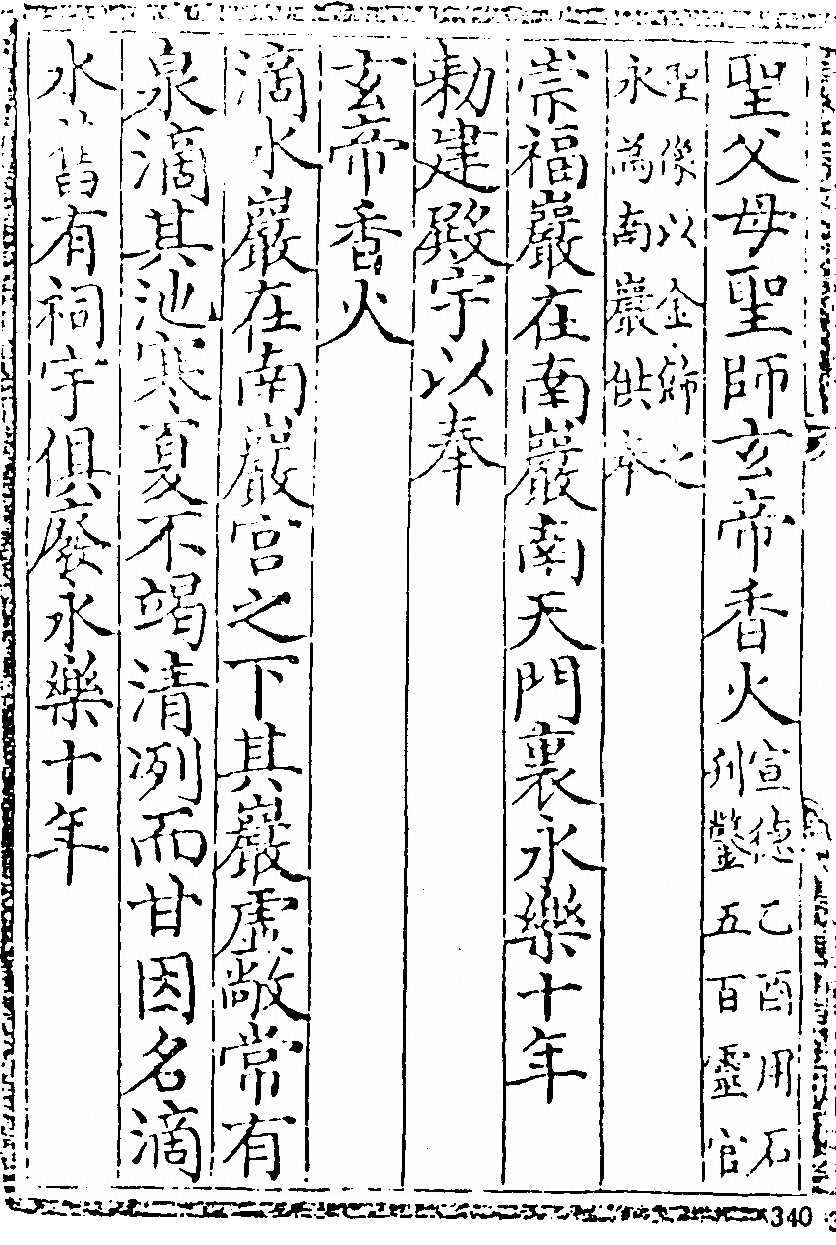 聖父母聖師玄帝香火宣德乙酉用石列鑿五百靈官
聖像以金飾之永為南巖供奉
崇福巖在南巖南天門裏永樂十年
勑建殿宇以奉
玄帝香火
滴水巖在南巖宮之下其巖虛敞常有
泉滴其池寒夏不竭清冽而甘因名滴
水舊有祠宇俱廢永樂十年
340